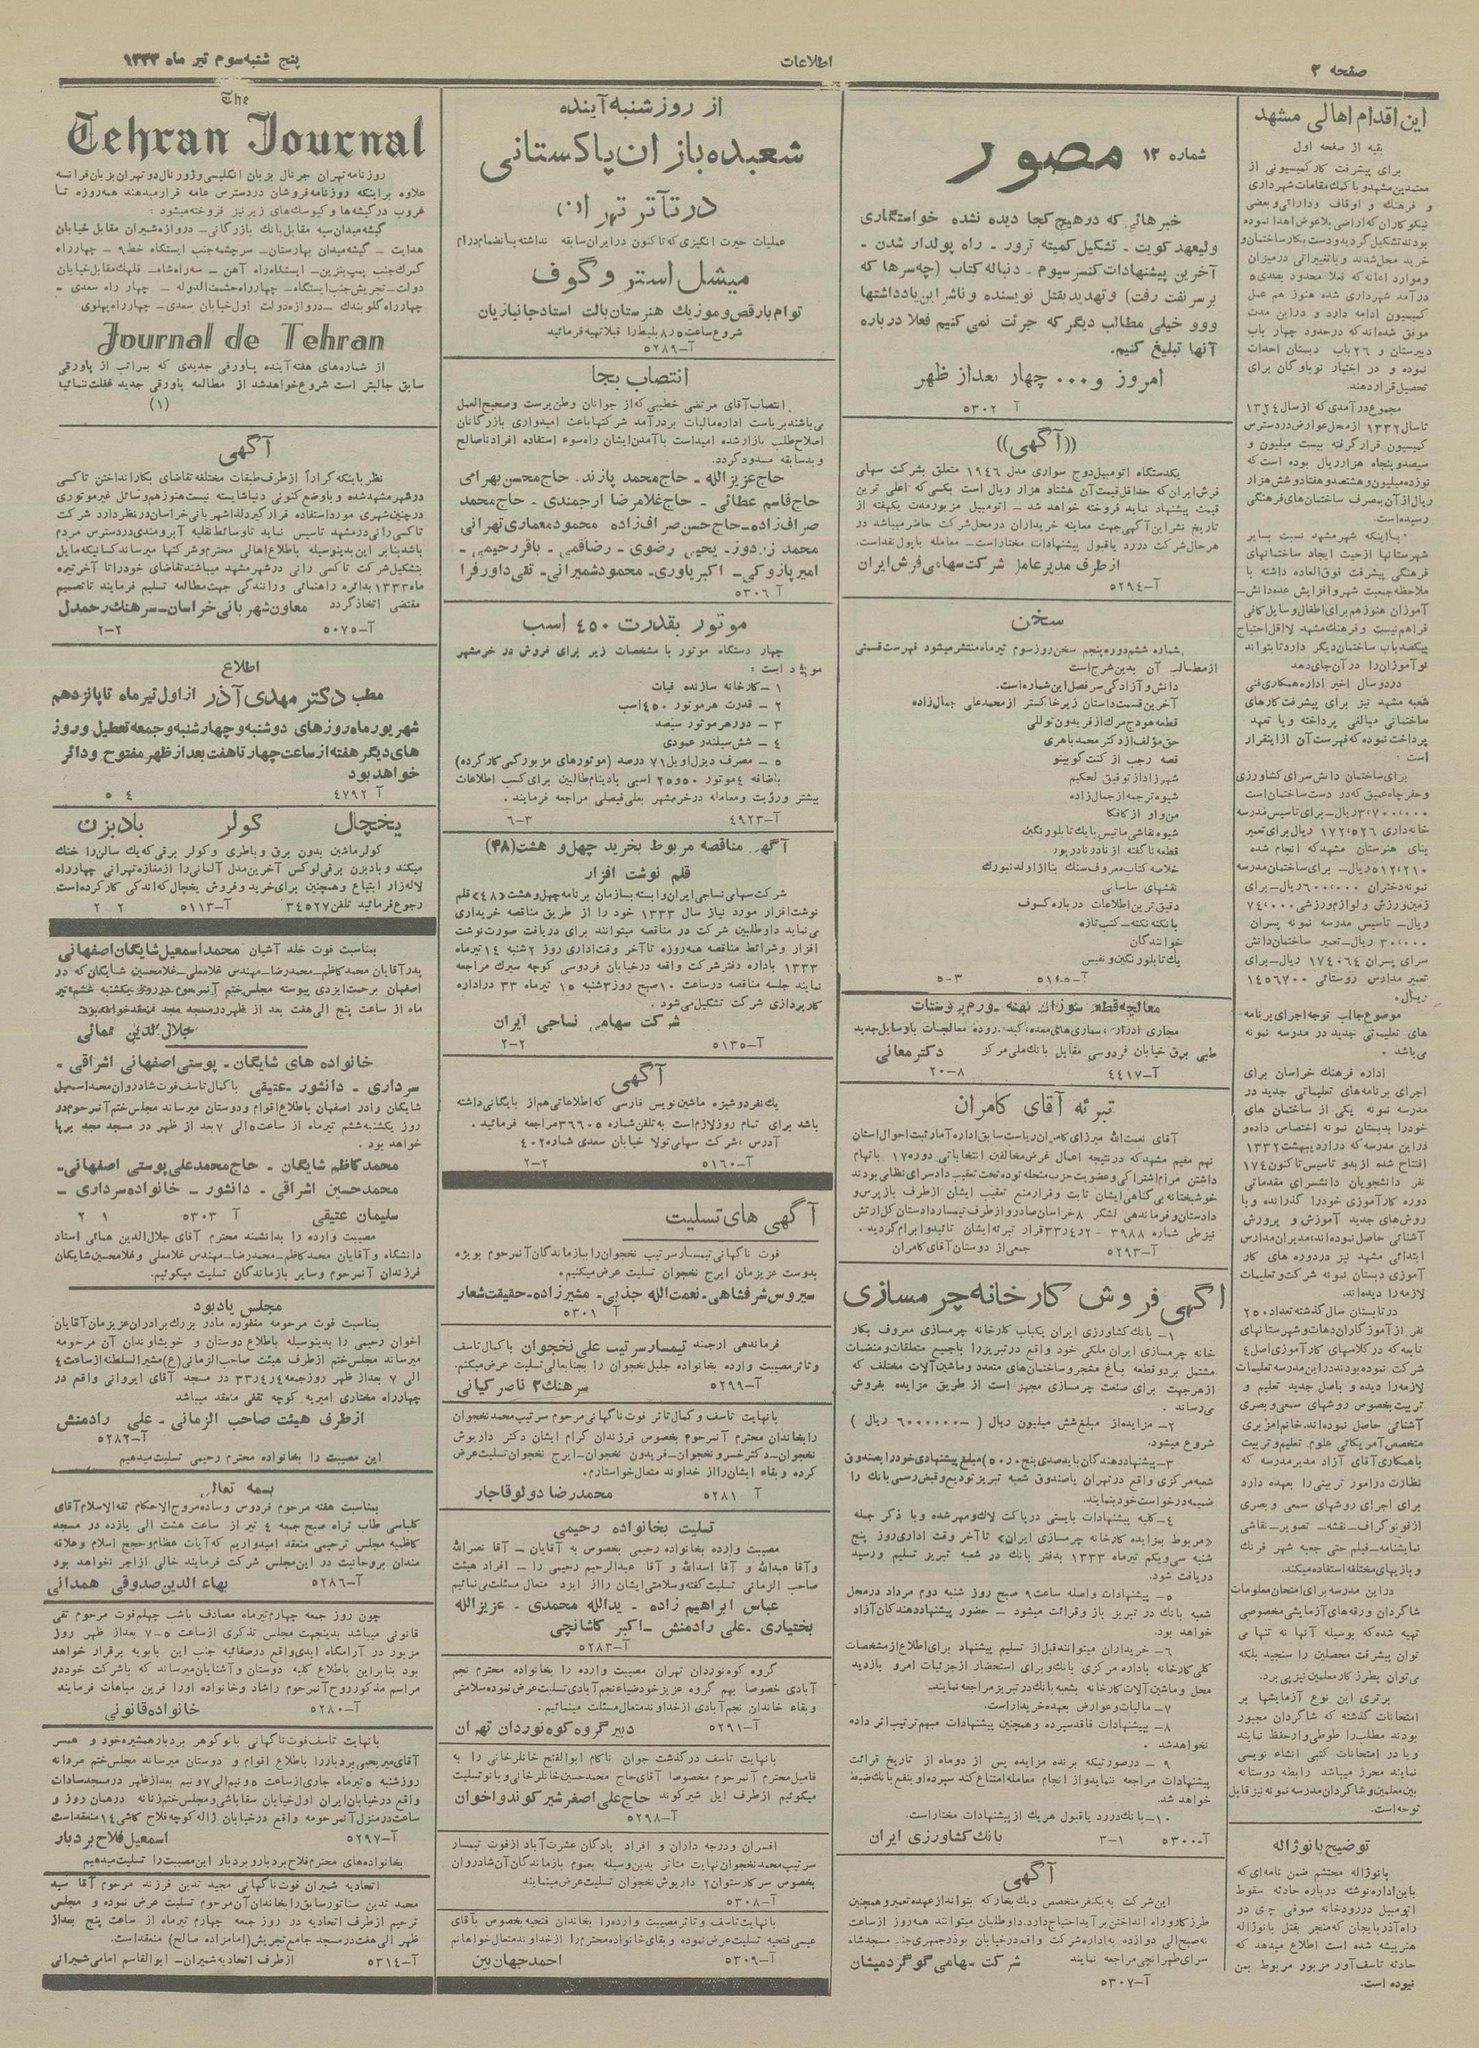 صفحه ۲
اطلاعات
پنج شنبه سوم تیر ماه ۱۳۳۳
این اقدام اهالی مشهد
بقیه از صفحه اول
برای پیشرفت کار کمیسیونی از
معتمدین مشهد و با کمک مقامات شهرداری
و فرهنگ و اوقاف ودارائی و بعضی
نیکوکاران که اراضی بلاعوض اهدا نموده
بودند تشکیل گردید و دست بکار ساختمان و
خرید محل شدند و با تغییراتی در میزان
و موارد اعانه که فعلا محدود بعدی ۵
درآمد شهرداری شده هنوز هم عمل
کمیسیون ادامه دارد و در این مدت
موفق شده‌اند که در حدود چهار باب
دبیرستان و ۲۶ باب دبستان احداث
نموده و در اختیار نوباوگان برای
تحصیل قرار دهند.
مجموع درآمدی که از سال ۱۳۲۴
تا سال ۱۳۳۲ از محل عوارض در دسترس
کمیسیون قرار گرفته بیست میلیون و
سیصد و پنجاه هزار ریال بوده است که
نوزده میلیون و هشتصد و هفتاد و شش هزار
ریال از آن بمصرف ساختمان‌های فرهنگی
رسیده است.
با اینکه شهر مشهد نسبت بسایر
شهرستانها از حیث ایجاد ساختمانهای
فرهنگی پیشرفت فوق العاده داشته با
ملاحظه جمعیت شهر و افزایش عده دانش‌ـ
آموزان هنوز هم برای اطفال وسایل کافی
فراهم نیست و فرهنگ مشهد لااقل احتیاج
بیکصد باب ساختمان دیگر دارد تا بتواند
نوآموزان را در آن جای دهد
در دو سال اخیر اداره همکاری فنی
شعبه مشهد نیز برای پیشرفت کارهای
ساختمانی مبالغی پرداخته و یا تعهد
پرداخت نموده که فهرست آن از اینقرار
است :
برای ساختمان دانش سرای کشاورزی
و حفر چاه عمیق که در دست ساختمان است
۳،۷۰۰،۰۰۰ ریال ـ برای تاسیس مدرسه
خانه داری ۱۷۲،۵۲۶ ریال برای تعمیر
بنای هنرستان مشهد که انجام شده
۵۱۲،۲۱۰ ریال ـ برای ساختمان مدرسه
نمونه دختران ۶۰۰،۰۰۰ ریال ـ برای
زمین ورزش و لوازم ورزشی ۷۴،۰۰۰
ریال ـ تاسیس مدرسه نمونه پسران
۳۰،۰۰۰ ریال ـ تعمیر ساختمان دانش
سرای پسران ۱۷۴۰۶۴ ریال ـ برای
تعمیر مدارس روستائی ۱۴۵۶۷۰۰
ریال.
موضوع جالب توجه اجرای برنامه
های تعلیمتی جدید در مدرسه نمونه
می‌باشد .
اداره فرهنگ خراسان برای
اجرای برنامه‌های تعلیماتی جدید در
مدرسه نمونه یکی از ساختمان های
خود را بدبستان نمونه اختصاص داده و
در این مدرسه که در اردیبهشت ۱۳۳۲
افتتاح شده از بدو تاسیس تاکنون ۱۷۴
نفر دانشجویان دانشسرای مقدماتی
دوره کارآموزی خود را گذرانده و با
روش‌های جدید آموزش و پرورش
آشنائی حاصل نموده‌اند، مدیران مدارس
ابتدائی مشهد نیز در دوره های کار
آموزی دبستان نمونه شرکت و تعلیمات
لازمه را دیده‌اند.
در تابستان سال گذشته تعداد ۲۵۰
نفر از آموزگاران دهات و شهرستانهای
تابعه که در کلاسهای کارآموزی اصل ۴
شرکت نموده بودند در این مدرسه تعلیمات
لازمه را دیده و با صل جدید تعلیم و
تربیت بخصوص روشهای سمعی و بصری
آشنائی حاصل نموده‌اند. خانم امزبری
متخصص آمریکائی علوم تعلیم و تربیت
با همکاری آقای آزاد مدیر مدرسه که
نظارت در امور تربیتی را بعهده دارد
برای اجرای روشهای سمعی و بصری
از فونوگراف ـ نقشه ـ تصویر ـ نقاشی
نمایشنامه ـ فیلم حتی جعبه شهر فرنگ
و بازیهای مختلفه استفاده میکند.
در این مدرسه برای امتحان معلومات
شاگردان ورقه‌های آزمایشی مخصوصی
تهیه شده که بوسیله آنها نه تنها می
توان پیشرفت محصلین را سنجید بلکه
می‌توان بطرز کار معلمین نیز پی برد.
برتری این نوع آزمایشها بر
امتحانات گذشته که شاگردان مجبور
بودند مطلب را طوطی وار حفظ نمایند
و یا در امتحانات کتبی انشاء نویسی
نمایند محرز میباشد رابطه دوستانه
بین معلمین و شاگردان مدرسه نمونه نیز قابل
توجه است.
توضیح بانو ژاله
بانو ژاله محتشم ضمن نامه‌ای که
باین اداره نوشته درباره حادثه سقوط
اتومبیل در رودخانه صوفی چی در
راه آذربایجان که منجر بقتل بانو ژاله
هنرپیشه شده است اطلاع میدهد که
حادثه تاسف آور مزبور مربوط بمن
نبوده است.
شماره ۱۲ مصور
خبرهائی که در هیچ کجا دیده نشده خواستگاری
ولیعهد کویت ـ تشکیل کمیته ترور ـ راه پولدار شدن ـ
آخرین پیشنهادات کنسرسیوم ـ دنباله کتاب (چه سرها که
بر سر نفت رفت) و تهدید بقتل نویسنده و ناشر این یادداشتها
ووو خیلی مطالب دیگر که جرئت نمی کنیم فعلا درباره
آنها تبلیغ کنیم.
امروز و ... چهار بعد از ظهر
آ ۵۳۰۲
((آگهی))
یکدستگاه اتومبیل دوج سواری مدل ۱۹۴۶ متعلق بشرکت سهامی
فرش ایران که حداقل قیمت آن هشتاد هزار ریال است بکسی که اعلی ترین
قیمت پیشنهاد نماید فروخته خواهد شد ـ اتومبیل مزبور مدت یکهفته از
تاریخ نشر این آگهی جهت معاینه خریداران در محل شرکت حاضر میباشد در
هر حال شرکت در رد یا قبول پیشنهادات مختار است ـ معامله با پول نقد است.
از طرف مدیر عامل شرکت سهامی فرش ایران
آ-۵۲۹۴
سخن
شماره ششم دوره پنجم سخن روز سوم تیر ماه منتشر میشود فهرست قسمتی
از مطالب آن بدین شرح است
دانش و آزادگی سر فصل این شماره است.
آخرین قسمت داستان زیر خاکستر از محمد علی جمال زاده
قطعه هودج مرگ از فریدون توللی
حق مؤلف از دکتر محمد باهری
قصه رجب از کنت گوبینو
شهرزاد از توفیق الحکیم
شیوه ترجمه از جمال زاده
من و او از کافکا
شیوه نقاشی ماتیس با یک تابلو رنگین
قطعه ناگفته از نادر نادرپور
خلاصه کتاب معروف سنگ بنا از اولد نبورک
نقشهای ساسانی
دقیق ترین اطلاعات درباره کسوف
با نکته نکته ـ کتب تازه
خوانندگان
یک تابلو رنگین و نفیس
آ-۵۱۶۵ ۳-۵
دکتر معانی
طبی برق خیابان فردوسی مقابل بانک ملی مرکز
آ-۴۴۱۷ ۸-۲۰
تبرئه آقای کامران
آقای نعمت الله میرزای کامران ریاست سابق اداره آمار ثبت احوال استان
نهم مقیم مشهد که در نتیجه اعمال غرض مخالفین انتخاباتی دوره ۱۷ باتهام
داشتن مرام اشتراکی و عضویت حزب منحله توده تحت تعقیب دادسرای نظامی بودند
خوشبختانه بی گناهی ایشان ثابت و قرار منع تعقیب ایشان از طرف بازپرس و
دادستان و فرماندهی لشگر ۸ خراسان صادر و از طرف تیمسار دادستان کل ارتش
نیز طی شماره ۳۹۸۸ - ۲ر۴ر۳۳ قرار تبرئه ایشان تائید و ابرام گردید.
آ-۵۲۹۳ جمعی از دوستان آقای کامران
آگهی فروش کارخانه چرمسازی
۱ـ بانک کشاورزی ایران یکباب کارخانه چرمسازی معروف بکار
خانه چرمسازی ایران ملکی خود واقع در تبریز را با جمیع متعلقات و منضمات
مشتمل بر دو قطعه باغ مشجر و ساختمان‌های متعدد و ماشین آلات مختلف که
از هر جهت برای صنعت چرمسازی مجهز است از طریق مزایده بفروش
می‌رساند .
۲ـ مزایده از مبلغ شش میلیون ریال ( ـ۶۰۰۰۰۰۰ ریال )
شروع میشود.
۳ـ پیشنهاد دهندگان باید صدی پنج (۵٪) مبلغ پیشنهادی خود را بصندوق
شعبه مرکزی واقع در تهران یا صندوق شعبه تبریز تودیع و قبض رسمی بانک را
ضمیمه درخواست خود بنمایند.
۴ـ کلیه پیشنهادات بایستی در پاکت لاک و مهر شده و با ذکر جمله
«مربوط بمزایده کارخانه چرمسازی ایران» تا آخر وقت اداری روز پنج
شنبه سی و یکم تیر ماه ۱۳۳۳ بدفتر بانک در شعبه تبریز تسلیم و رسید
دریافت شود.
۵ـ پیشنهادات واصله ساعت ۹ صبح روز شنبه دوم مرداد در محل
شعبه بانک در تبریز باز و قرائت میشود ـ حضور پیشنهاد دهندگان آزاد
خواهد بود.
۶ـ خریداران میتوانند قبل از تسلیم پیشنهاد برای اطلاع از مشخصات
کلی کارخانه باداره مرکزی بانک و برای استحضار از جزئیات امر و بازدید
محل و ماشین آلات کارخانه بشعبه بانک در تبریز مراجعه نمایند.
۷ـ مالیات و عوارض بعهده خریدار است.
۸ـ پیشنهادات فاقد سپرده و همچنین پیشنهادات مبهم ترتیب اثر داده
نخواهد شد .
۹ ـ در صورتیکه برنده مزایده پس از دو ماه از تاریخ قرائت
پیشنهادات مراجعه ننماید و از انجام معامله امتناع کند سپرده او بنفع بانک ضبط
خواهد شد.
۱۰ـ بانک در رد یا قبول هر یک از پیشنهادات مختار است.
آ-۵۳۰۰ بانک کشاورزی ایران ۱-۳
آگهی
این شرکت به یکنفر متخصص دیگ بخار که بتواند از عهده تعمیر و همچنین
طرز کار و راه انداختن بر آید احتیاج دارد. داوطلبان میتوانند همه روز از ساعت
نه صبح الی دوازده به اداره شرکت واقع در خیابان بوذرجمهری جنب مسجد شاه
سرای طهرانچی مراجعه نمایند شرکت سهامی گوگرد میشان
آ-۵۳۰۷
از روز شنبه آینده
شعبده بازان پاکستانی
در تآتر تهران
عملیات حیرت انگیزی که تاکنون در ایران سابقه نداشته بانضمام درام
میشل استروگوف
توام با رقص و موزیک هنرستان بالت استاد جانبازیان
شروع ساعت ۸٫۵ بلیط را قبلا تهیه فرمائید
آ-۵۲۸۹
انتصاب بجا
انتصاب آقای مرتضی خطیبی که از جوانان وطن پرست و صحیح العمل
می‌باشند بریاست اداره مالیات بر درآمد شرکتها باعث امیدواری بازرگانان
اصلاح طلب بازار شده امید است با آمدن ایشان راه سوء استفاده افراد ناصالح
و بد سابقه مسدود گردد.
حاج عزیزالله ـ حاج محمد پازند. حاج محسن بهرامی
حاج قاسم عطائی ـ حاج غلامرضا ارجمندی ـ حاج محمد
صراف زاده ـ حاج حسن صراف زاده محمود معماری تهرانی
محمد زردوز ـ یحیی رضوی ـ رضا قمی ـ باقر رحیمی ـ
امیر پازوکی ـ اکبر یاوری ـ محمود شمیرانی ـ تقی داورفرا
آ ۵۳۰۶
موتور بقدرت ۴۵۰ اسب
چهار دستگاه موتور با مشخصات زیر برای فروش در خرمشهر
موجود است :
۱ ـ کارخانه سازنده فیات
۲ ـ قدرت هر موتور ۴۵۰ اسب
۳ ـ دور هر موتور سیصد
۴ ـ شش سیلندر عمودی
۵ ـ مصرف دیزل اویل ۷۱ درصد (موتورهای مزبور کمی کار کرده)
باضافه ۴ موتور ۲۵ر۵۰ اسبی با دینام طالبین برای کسب اطلاعات
بیشتر و رؤیت و معامله در خرمشهر بعلی فیصلی مراجعه فرمایند .
آ-۴۹۲۳ ۳-۶
آگهی مناقصه مربوط بخرید چهل و هشت (۴۸)
قلم نوشت افزار
شرکت سهامی نساجی ایران وابسته بسازمان برنامه چهل و هشت «۴۸» قلم
نوشت افزار مورد نیاز سال ۱۳۳۳ خود را از طریق مناقصه خریداری
می‌نماید داوطلبین شرکت در مناقصه میتوانند برای دریافت صورت نوشت
افزار و شرائط مناقصه همه روزه تا آخر وقت اداری روز ۲ شنبه ۱۴ تیر ماه
۱۳۳۳ باداره دفتر شرکت واقعه در خیابان فردوسی کوچه سیرک مراجعه
نمایند جلسه مناقصه در ساعت ۱۰ صبح روز ۳ شنبه ۱۵ تیر ماه ۳۳ در اداره
کارپردازی شرکت تشکیل می‌شود.
شرکت سهامی نساجی ایران
آ-۵۱۳۵ ۲-۲
آگهی
یک نفر دوشیزه ماشین نویس فارسی که اطلاعاتی هم از بایگانی داشته
باشد برای تمام روز لازم است به تلفن شماره ۳۶۶۰۵ مراجعه فرمائید.
آدرس : شرکت سهامی تولا خیابان سعدی شماره ۴۰۲
آ-۵۱۶۰ ۲-۲
آگهی های تسلیت
فوت ناگهانی تیمسار سرتیپ نخجوان را ببازماندگان آنمرحوم بویژه
بدوست عزیزمان ایرج نخجوان تسلیت عرض میکنیم.
سیروس شرفشاهی ـ نعمت الله جذبی ـ مشیرزاده ـ حقیقت شعار
آ ۵۳۰۱
فرماندهی ارجمند تیمسار سرتیپ علی نخجوان با کمال تاسف
و تاثر مصیبت وارده بخانواده جلیل نخجوان را بجنابعالی تسلیت عرض میکنم.
آ-۵۲۹۹ سرهنگ ۲ ناصر کیانی
با نهایت تاسف و کمال تاثر فوت ناگهانی مرحوم سرتیپ محمد نخجوان
را بخاندان محترم آنمرحوم بخصوص فرزندان گرام ایشان دکتر داریوش
نخجوان ـ دکتر خسرو نخجوان ـ فریدون نخجوان ـ ایرج نخجوان تسلیت عرض
کرده و بقاء ایشان را از خداوند متعال خواستارم.
آ ۵۲۸۱ محمد رضا دولو قاجار
تسلیت بخانواده رحیمی
مصیبت وارده بخانواده رحیمی بخصوص به آقایان ـ آقا نصرالله
و آقا عبدالله و آقا اسدالله و آقا عبدالرحیم رحیمی را ـ افراد هیئت
صاحب الزمانی تسلیت گفته و سلامتی ایشان را از ایزد متعال مسئلت می‌نمائیم
عباس ابراهیم زاده ـ یدالله محمدی ـ عزیزالله
بختیاری ـ علی رادمنش ـ اکبر کاشانچی
آ-۵۲۸۳
گروه کوه نوردان تهران مصیبت وارده را بخانواده محترم نجم
آبادی خصوصا بهم گروه عزیز خود ضیاء نجم آبادی تسلیت عرض نموده سلامتی
و بقاء خاندان نجم آبادی از خداوند متعال مسئلت مینمائیم .
آ-۵۲۹۱ دبیر گروه کوه نوردان تهران
با نهایت تاسف درگذشت جوان ناکام ابوالفتح خانلرخانی را به
فامیل محترم آنمرحوم مخصوصا آقای حاج محمد حسین خانلرخانی و بانو تسلیت
میگوئیم از طرف ایل شیر کوند حاج علی اصغر شیر کوند و اخوان
آ-۵۲۹۸
افسران و درجه داران و افراد پادگان عشرت آباد از فوت تیمسار
سرتیپ محمد نخجوان نهایت متاثر بدین وسیله بعموم بازماندگان آن شادروان
بخصوص سرکار ستوان ۲ داریوش نخجوان تسلیت عرض مینمایند
آ-۵۳۰۸
با نهایت تاسف و تاثر مصیبت وارده را بخاندان فتحیه بخصوص بآقای
عیسی فتحیه تسلیت عرض نموده و بقای خانواده محترم را از خداوند متعال خواهانم
آ-۵۳۰۹ احمد جهان بین
The
Tehran Journal
روزنامه تهران جرنال بزبان انگلیسی و ژورنال دو تهران بزبان فرانسه
علاوه بر اینکه روزنامه فروشان در دسترس عامه قرار میدهند همه روزه تا
غروب در گیشه‌ها و کیوسک‌های زیر نیز فروخته میشود :
گیشه میدان سپه مقابل بانک بازرگانی ـ دروازه شمیران مقابل خیابان
هدایت ـ گیشه میدان بهارستان ـ سرچشمه جنب ایستگاه خط ۹ ـ چهارراه
گمرک جنب پمپ بنزین ـ ایستگاه راه آهن ـ سه راه شاه ـ فلیک مقابل خیابان
دولت ـ تجریش جنب ایستگاه ـ چهارراه حشمت الدوله ـ چهار راه سعدی ـ
چهارراه گلوبندک ـ دروازه دولت اول خیابان سعدی ـ چهارراه پهلوی
Journal de Tehran
از شماره‌های هفته آینده پاورقی جدیدی که بمراتب از پاورقی
سابق جالبتر است شروع خواهد شد از مطالعه پاورقی جدید غفلت ننمائید
(۱)
آگهی
نظر باینکه کراراً از طرف طبقات مختلفه تقاضای بکار انداختن تاکسی
در شهر مشهد شده و با وضع کنونی دنیا شایسته نیست هنوز هم وسائل غیر موتوری
در چنین شهری مورد استفاده قرار گیرد لذا شهربانی خراسان در نظر دارد شرکت
تاکسی رانی در مشهد تاسیس نماید تا وسائط نقلیه آبرومندی در دسترس مردم
باشد بنابر این بدینوسیله باطلاع اهالی محترم و شرکتها میرساند کسانیکه مایل
بتشکیل شرکت تاکسی رانی در شهر مشهد میباشند تقاضای خود را تا آخر تیر
ماه ۱۳۳۳ بدائره راهنمائی و رانندگی جهت مطالعه تسلیم فرمایند تا تصمیم
مقتضی اتخاذ گردد معاون شهربانی خراسان ـ سرهنگ رحمدل
آ-۵۰۷۵ ۲-۲
اطلاع
مطب دکتر مهدی آذر از اول تیر ماه تا پانزدهم
شهریور ماه روزهای دوشنبه و چهارشنبه و جمعه تعطیل و روز
های دیگر هفته از ساعت چهار تا هفت بعد از ظهر مفتوح و دائر
خواهد بود
آ ۴۷۹۲ ۴ ۵
یخچال کولر بادبزن
کولر ماشین بدون برق و باطری و کولر برقی که یک سالن را خنک
میکند و بادبزن برقی لوکس آخرین مدل آلمانی را از مغازه تهرانی چهارراه
لاله زار ابتیاع و همچنین برای خرید و فروش یخچال که اندکی کار کرده است
رجوع فرمائید تلفن ۳۴۵۲۷ آ-۵۱۱۳ ۲ ۲
بمناسبت فوت خلد آشیان محمد اسمعیل شایگان اصفهانی
پدر آقایان محمد کاظم ـ محمد رضا ـ مهندس غلامعلی ـ غلامحسین شایگان که در
اصفهان برحمت ایزدی پیوسته مجلس ختم آنمرحوم در روز یکشنبه ششم تیر
ماه از ساعت پنج الی هفت بعد از ظهر در مسجد مجد منعقد خواهد بود.
جلال الدین همائی
خانواده های شایگان ـ پوستی اصفهانی اشراقی ـ
سرداری ـ دانشور ـ عتیقی با کمال تاسف فوت شادروان محمد اسمعیل
شایگان را در اصفهان باطلاع اقوام و دوستان میرساند مجلس ختم آنمرحوم در
روز یکشنبه ششم تیر ماه از ساعت ۵ الی ۷ بعد از ظهر در مسجد مجد برپا
خواهد بود .
محمد کاظم شایگان ـ حاج محمد علی پوستی اصفهانی ـ
محمد حسین اشراقی ـ دانشور ـ خانواده سرداری ـ
سلیمان عتیقی آ ۵۳۰۳ ۱ ۲
مصیبت وارده را بدانشمند محترم آقای جلال الدین همائی استاد
دانشگاه و آقایان محمد کاظم ـ محمد رضا ـ مهندس غلامعلی و غلامحسین شایگان
فرزندان آنمرحوم و سایر بازماندگان تسلیت میگوئیم.
مجلس یادبود
بمناسبت فوت مرحومه مغفوره مادر بزرگ برادران عزیزمان آقایان
اخوان رحیمی را بدینوسیله باطلاع دوستان و خویشاوندان آن مرحومه
میرساند مجلس ختم از طرف هیئت صاحب الزمانی (ع) مشیرالسلطنه از ساعت ۴
الی ۷ بعد از ظهر روز جمعه ۴ر۴ر۳۳ در مسجد آقای ایروانی واقع در
چهارراه مختاری امیریه کوچه ثقفی منعقد میباشد
از طرف هیئت صاحب الزمانی ـ علی رادمنش
آ-۵۲۸۲
این مصیبت را بخانواده محترم رحیمی تسلیت میدهیم
بسمه تعالی
بمناسبت هفته مرحوم فردوس وساده مروج الاحکام ثقه الاسلام آقای
کلباسی طاب ثراه صبح جمعه ۴ تیر از ساعت هشت الی یازده در مسجد
کاظمیه مجلس ترحیمی منعقد امیدواریم که آیات عظام و حجج اسلام و علاقه
مندان بروحانیت در این مجلس شرکت فرمایند خالی از اجر نخواهد بود
آ-۵۲۸۶ بهاء الدین صدوقی همدانی
چون روز جمعه چهارم تیر ماه مصادف باشب چهلم فوت مرحوم تقی
قانونی میباشد بدینجهت مجلس تذکری از ساعت ۵-۷ بعد از ظهر روز
مزبور در آرامگاه ابدی واقع در صفائیه جنب ابن بابویه برقرار خواهد
بود بنابر این باطلاع کلیه دوستان و آشنایان میرساند که با شرکت خود در
مراسم مذکور روح آنمرحوم را شاد و خانواده او را قرین مباهات فرمایند
آ-۵۲۸۰ خانواده قانونی
با نهایت تاسف فوت ناگهانی بانو گوهر بردبار همشیره خود و همسر
آقای میر یحیی بردبار را باطلاع اقوام و دوستان میرساند مجلس ختم مردانه
روز شنبه ۵ تیر ماه جاری از ساعت ۵ و نیم الی ۷ و نیم بعد از ظهر در مسجد سادات
واقع در خیابان ایران اول خیابان سقاباشی و مجلس ختم زنانه در همان روز و
ساعت در منزل آنمرحومه واقع در خیابان ژاله کوچه فلاح کاشی ۱۴ منعقد است
آ-۵۲۹۷ اسمعیل فلاح بردبار
بخانواده‌های محترم فلاح بردبار و بردبار این مصیبت را تسلیت میدهیم
اتحادیه شمیران فوت ناگهانی مجید تدین فرزند مرحوم آقا سید
محمد تدین سناتور سابق را بخاندان آن مرحوم تسلیت عرض نموده و مجلس
ترحیم از طرف اتحادیه در روز جمعه چهارم تیر ماه از ساعت پنج بعد از
ظهر الی هفت در مسجد جامع تجریش (امامزاده صالح) منعقد است.
آ-۵۳۱۴ از طرف اتحادیه شمیران ـ ابوالقاسم امامی شمیرانی